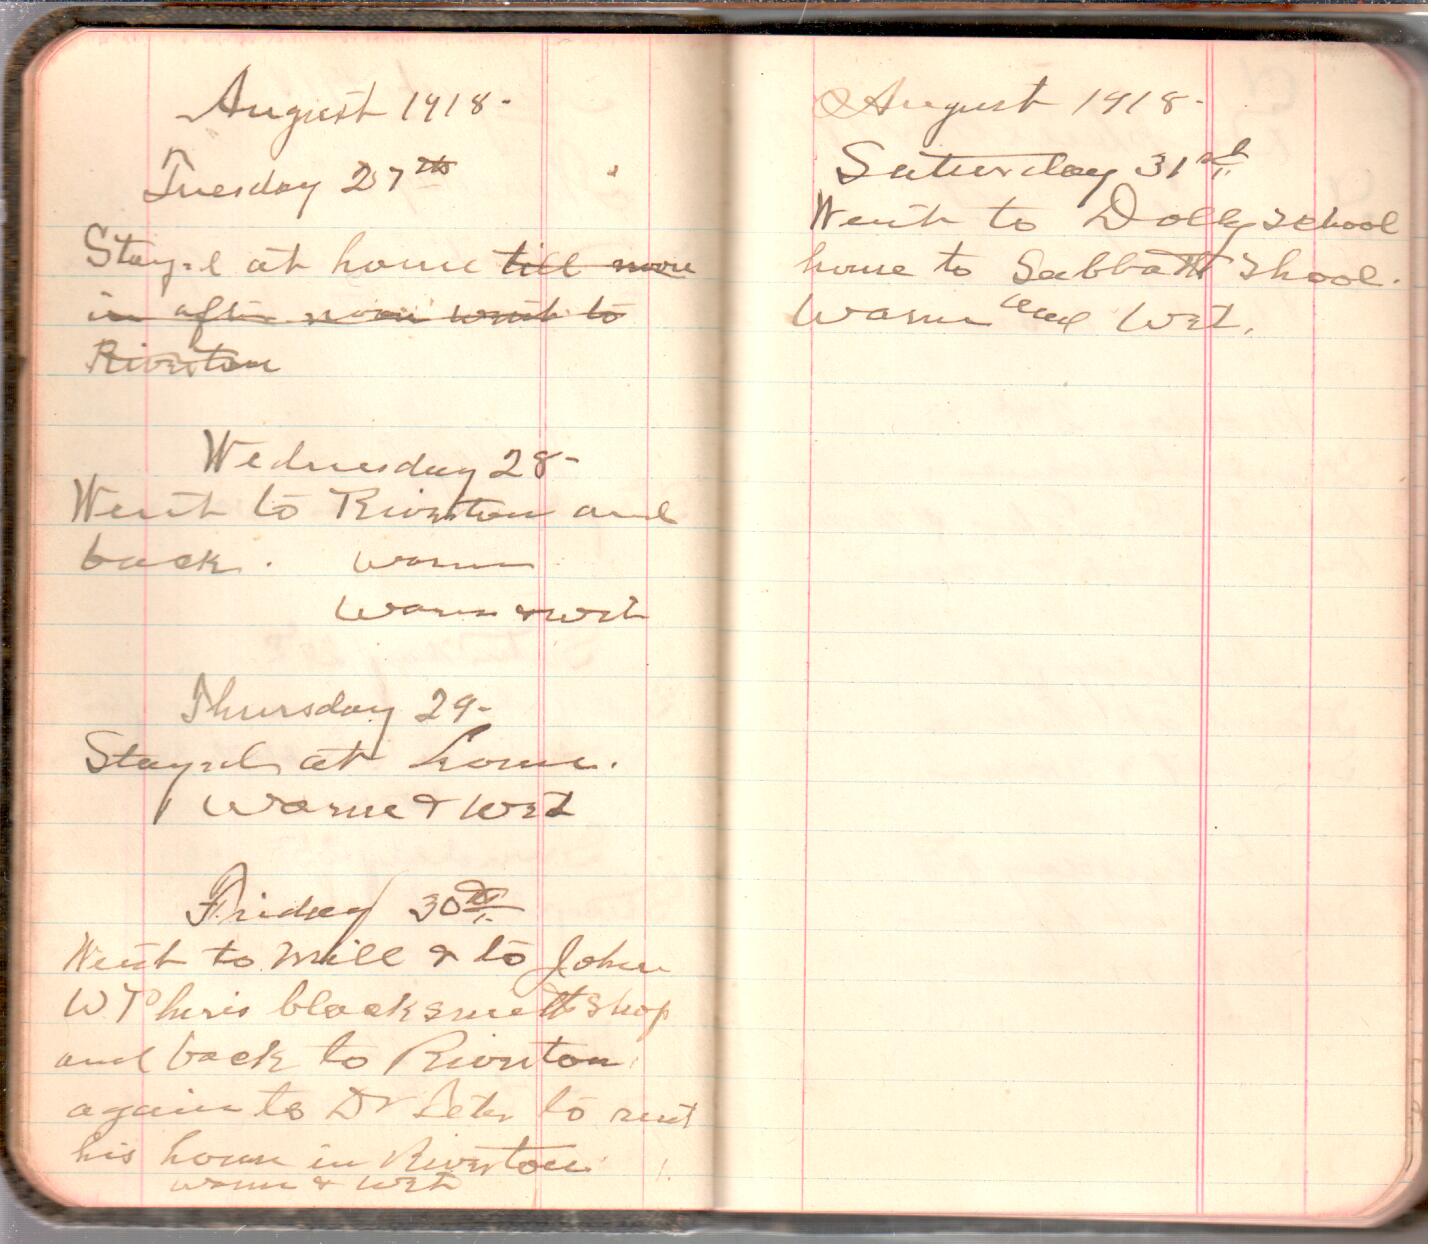 August 1918-
Tuesday 27th
Stayed at home till noon
in after noon went to
Riverton
Wednesday 28-
Went to Riverton and
back. Warm
Warm & Wet
Thursday 29-
Stayed at home.
Warm & Wet
Friday 30th
Went to Mill & to John
W blacksmith shop
and back to Riverton
again to Dr to rent
his house in Riverton
Warm & Wet
August 1918-
Saturday 31st
Went to Dolly School
house to Sabbath Shool.
Warm and Wet.